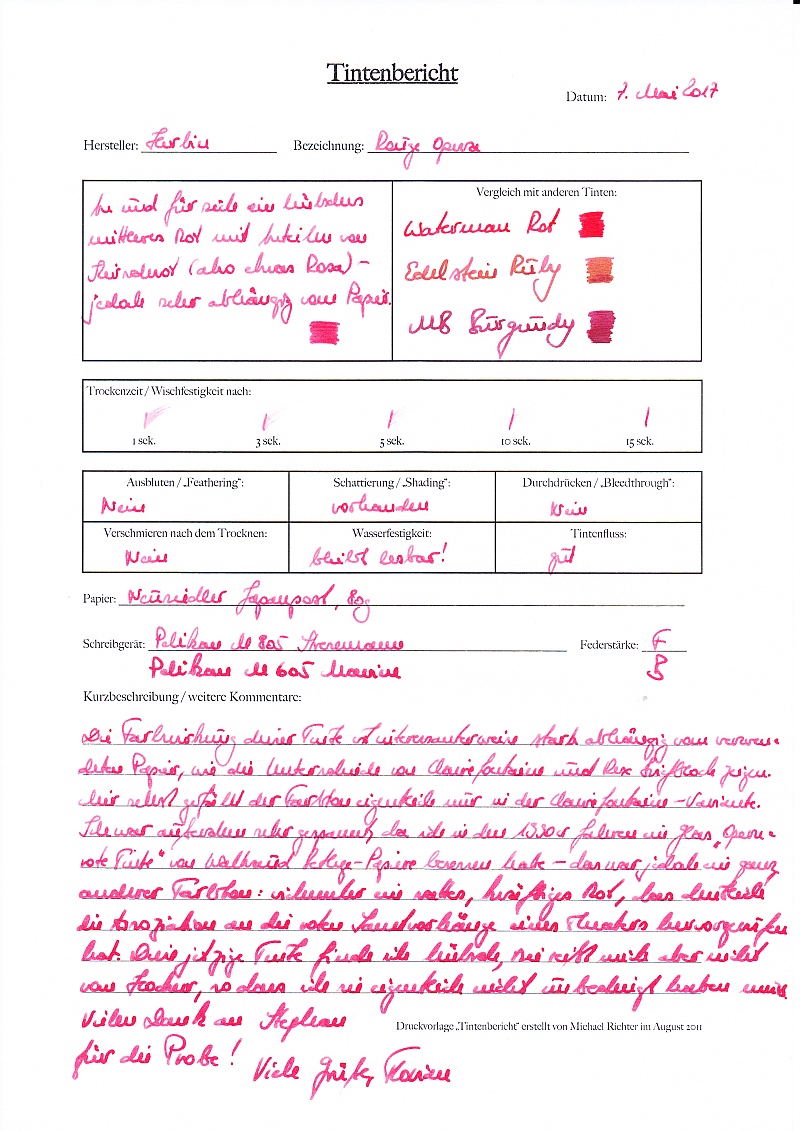 Tintenbericht
Datum: 7. Mai 2017
Hersteller: Herbin Bezeichnung: Rouge Opera
An und für sich ein hübsches
mittleres Rot mit Anteilen von
Himbeerrot (also etwas Rosa) –
jedoch sehr abhängig vom Papier.
Vergleich mit anderen Tinten:
Waterman Rot
Edelstein Ruby
MB Burgundy
Trockenzeit / Wischfestigkeit nach:
1 sek. 3 sek. 5 sek. 10 sek. 15 sek.
Ausbluten / „Feathering“: Schattierung / „Shading“: Durchdrücken / „Bleedthrough“:
Nein vorhanden Nein
Verschmieren nach dem Trocknen: Wasserfestigkeit: Tintenfluss:
Nein bleibt lesbar! gut
Papier: Neusiedler Japanpost, 80g
Schreibgerät: Pelikan M 805 Stresemann Federstärke: F
Pelikan M 605 Marine B
Kurzbeschreibung / weitere Kommentare:
Die Farbwirkung dieser Tinte ist interessanterweise stark abhängig vom verwen-
deten Papier, wie die Unterschiede von Clairefontaine und Rex zeigen.
Mir selbst gefällt der Farbton eigentlich nur in der Clairefontaine-Variante.
Ich war außerdem sehr gespannt, da ich in den 1990er Jahren ein Glas „Opern-
rote Tinte“ von Papiere besessen habe – das war jedoch ein ganz
anderer Farbton: vielmehr ein sattes, kräftiges Rot, das deutlich
die Assoziation an die roten Samtvorhänge eines Theaters hervorgerufen
hat. Diese jetzige Tinte finde ich hübsch, sie reißt mich aber nicht
vom Hocker, so dass ich sie eigentlich nicht unbedingt haben muss
Vielen Dank an Stephan
Druckvorlage „Tintenbericht“ erstellt von Michael Richter im August 2011
für die Probe! Viele Grüße, Florian